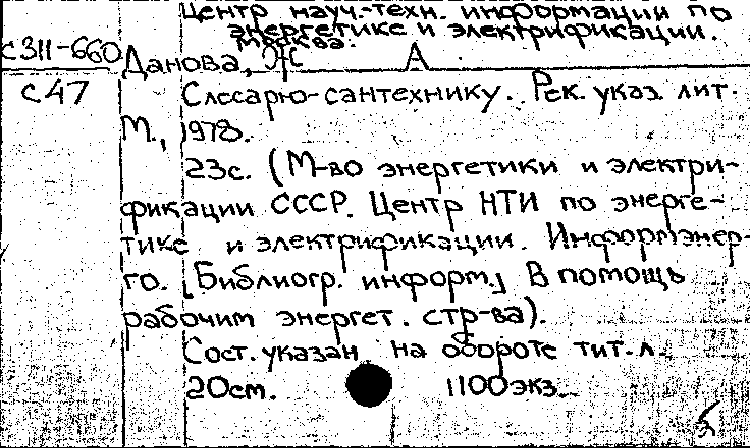 Центр науч.-техн. информации по
энергетике и электрификации.
Москва.
с311-660 Данова, Ж А
с47 Слесарю-сантехнику. Рек. указ. лит.
М., 1978.
23с. (М-во энергетики и электри-
фикации СССР. Центр НТИ по энерге-
тике и электрификации. Информэнер-
го. [Библиогр. информ.] В помощь
рабочим энергет. стр-ва).
Сост. указан на обороте тит. л.
20см. 1100экз.